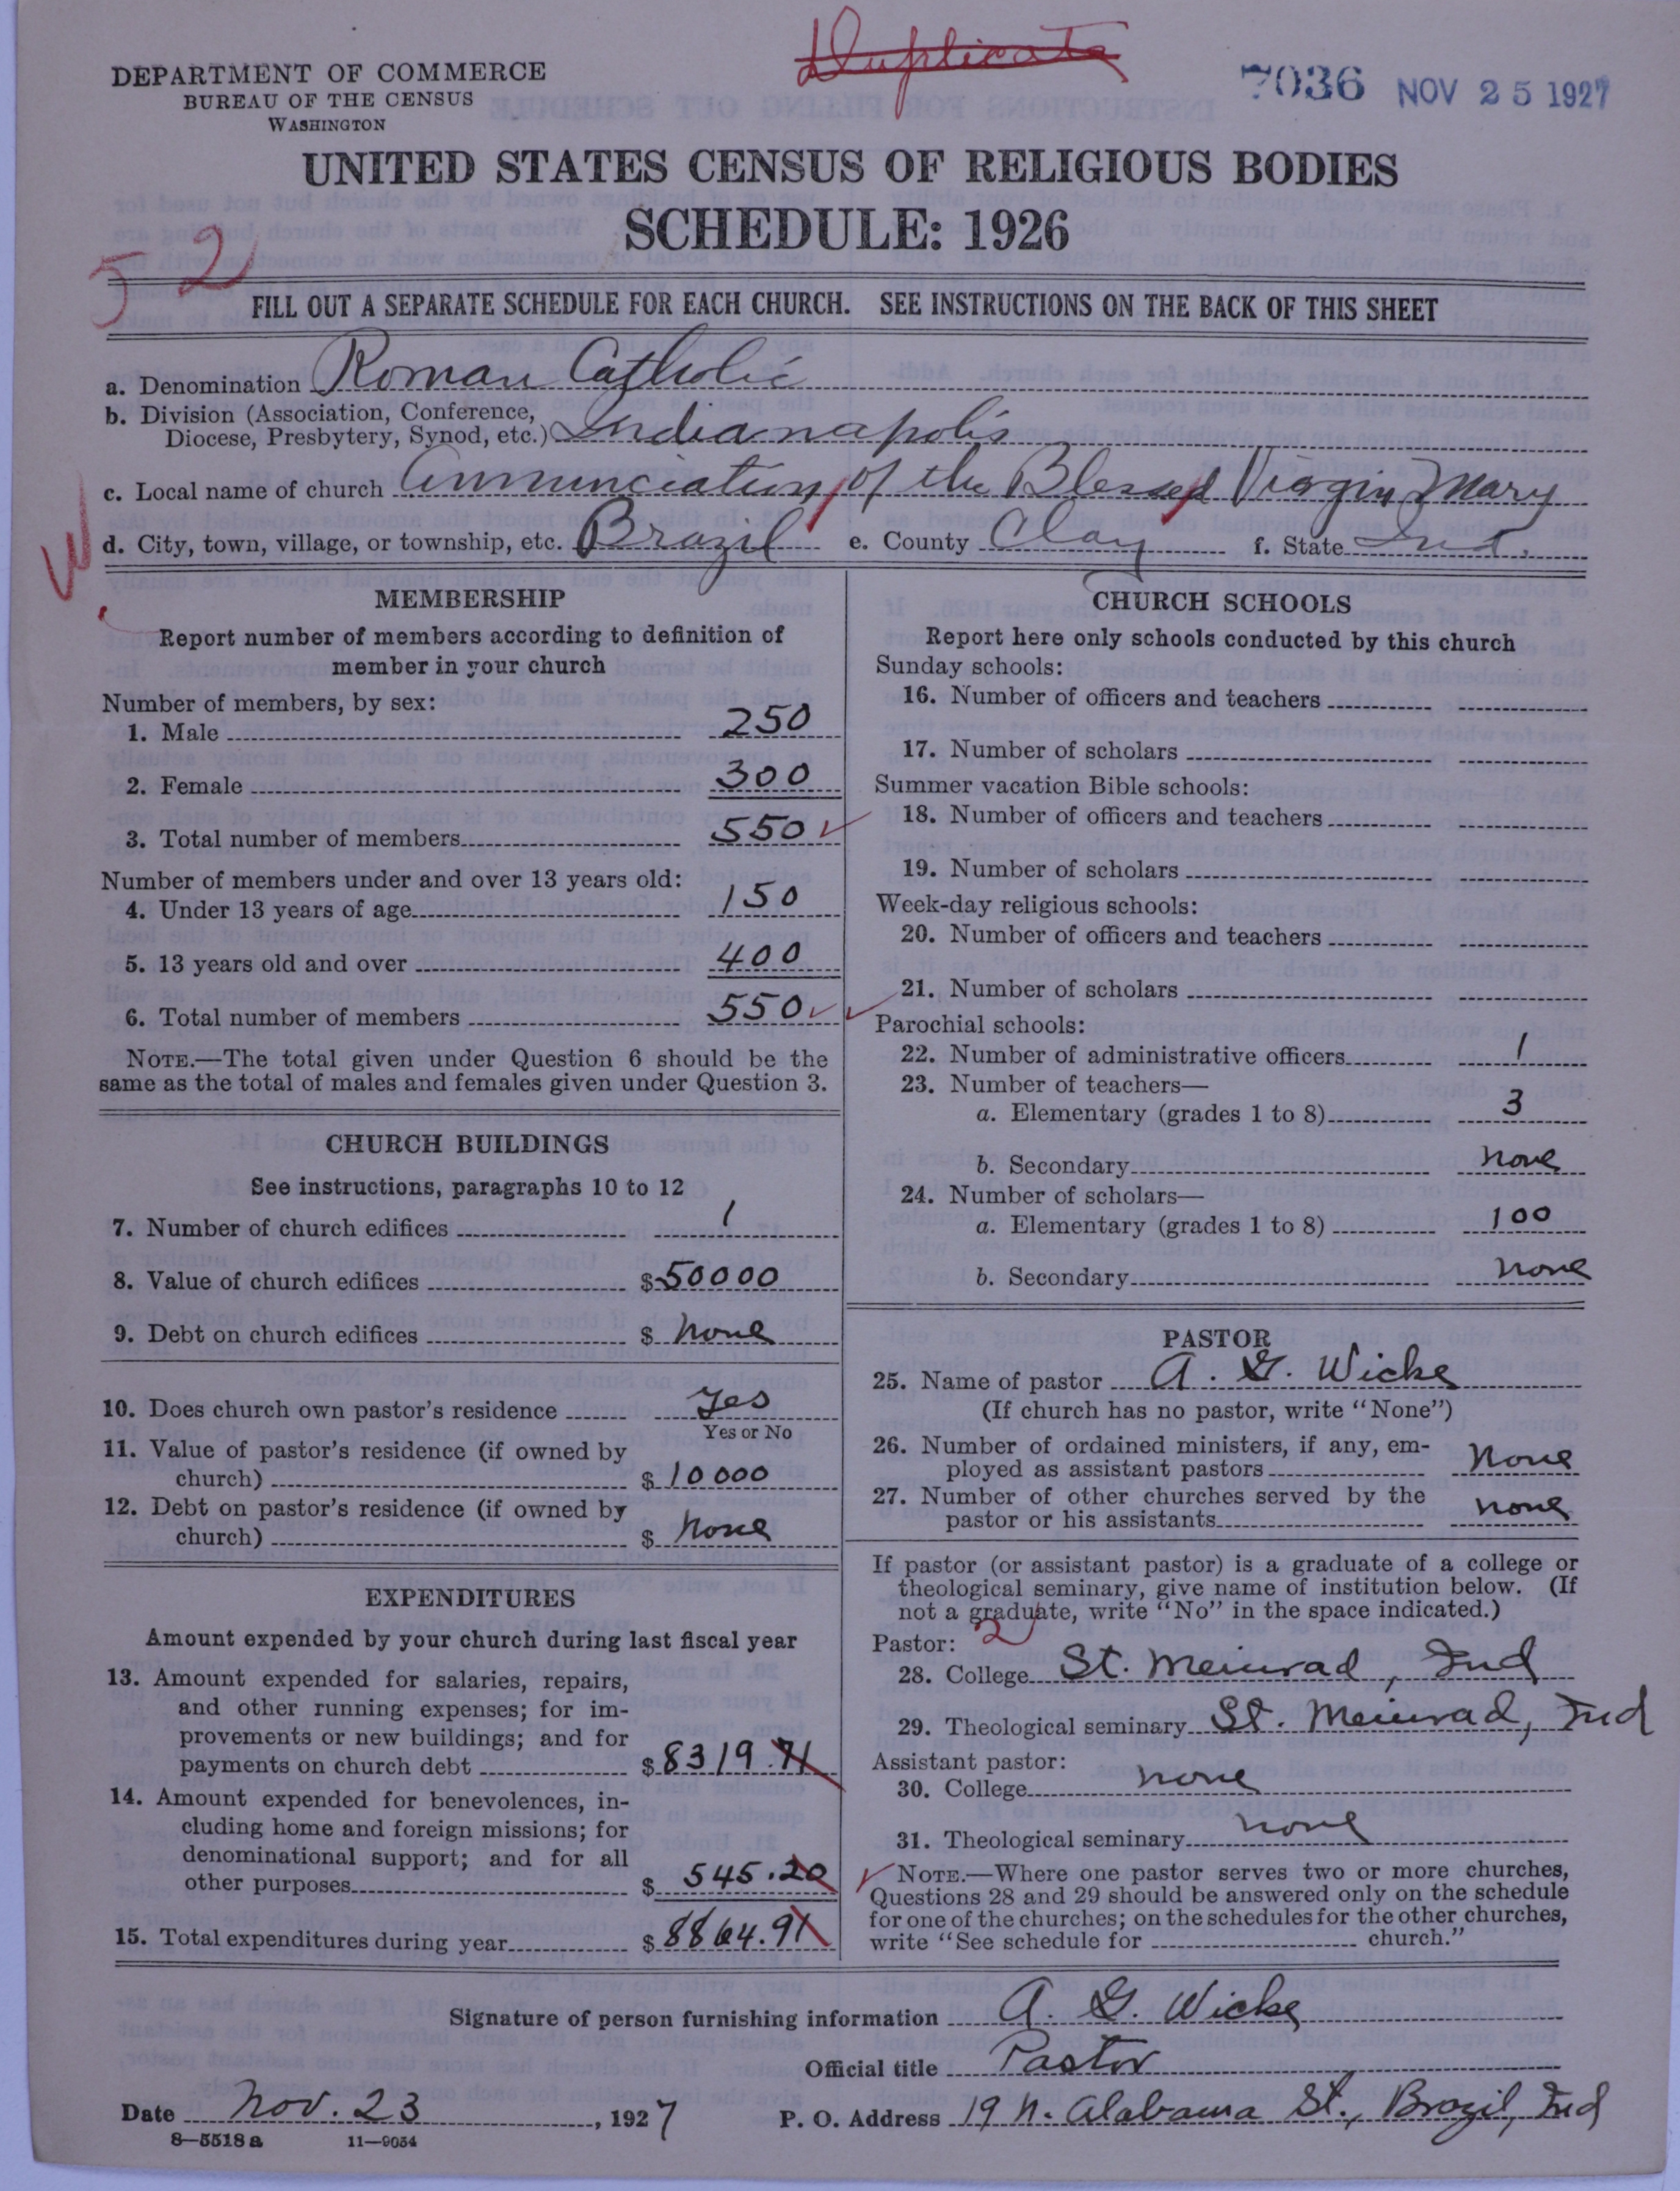 Duplicate
DEPARTMENT OF COMMERCE
BUREAU OF THE CENSUS
WASHINGTON
7036 NOV 25 1927
UNITED STATES CENSUS OF RELIGIOUS BODIES
SCHEDULE: 1926
52
FILL OUT A SEPARATE SCHEDULE FOR EACH CHURCH. SEE INSTRUCTIONS ON THE BACK OF THIS SHEET
a. Denomination Roman Catholic
b. Division (Association, Conference,
Diocese, Presbytery, Synod, etc.) Indianapolis
c. Local name of church Annunciation of the Blessed Virgin Mary
d. City, town, village, or township, etc. Brazil e. County Clay f. State Ind.
MEMBERSHIP
Report number of members according to definition of
member in your church
Number of members, by sex:
1. Male 250
2. Female 300
3. Total number of members 550
Number of members under and over 13 years old:
4. Under 13 years of age 150
5. 13 years old and over 400
6. Total number of members 550
NOTE.—The total given under Question 6 should be the
same as the total of males and females given under Question 3.
CHURCH BUILDINGS
See instructions, paragraphs 10 to 12
7. Number of church edifices 1
8. Value of church edifices $50000
9. Debt on church edifices $ none
10. Does church own pastor's residence Yes
Yes or No
11. Value of pastor's residence (if owned by
church) $10000
12. Debt on pastor's residence (if owned by
church) $ none
EXPENDITURES
Amount expended by your church during last fiscal year
13. Amount expended for salaries, repairs,
and other running expenses; for im-
provements or new buildings; and for
payments on church debt $8319.71
14. Amount expended for benevolences, in-
cluding home and foreign missions; for
denominational support; and for all
other purposes $ 545.20
15. Total expenditures during year $8864.91
CHURCH SCHOOLS
Report here only schools conducted by this church
Sunday schools:
16. Number of officers and teachers
17. Number of scholars
Summer vacation Bible schools:
18. Number of officers and teachers
19. Number of scholars
Week-day religious schools:
20. Number of officers and teachers
21. Number of scholars
Parochial schools:
22. Number of administrative officers 1
23. Number of teachers—
a. Elementary (grades 1 to 8) 3
b. Secondary none
24. Number of scholars—
a. Elementary (grades 1 to 8) 100
b. Secondary none
PASTOR
25. Name of pastor A. G. Wicke
(If church has no pastor, write "None")
26. Number of ordained ministers, if any, em-
ployed as assistant pastors none
27. Number of other churches served by the
pastor or his assistants none
If pastor (or assistant pastor) is a graduate of a college or
theological seminary, give name of institution below. (If
not a graduate, write "No" in the space indicated.)
Pastor: 2
28. College St. Meinrad, Ind
29. Theological seminary St. Meinrad, Ind
Assistant pastor:
30. College none
31. Theological seminary none
NOTE.—Where one pastor serves two or more churches,
Questions 28 and 29 should be answered only on the schedule
for one of the churches; on the schedules for the other churches,
write "See schedule for church."
Signature of person furnishing information A. G. Wicke
Official title Pastor
Date Nov. 23, 1927 P. O. Address 19 N. Alabama St., Brazil, Ind
8—5518a 11—9034